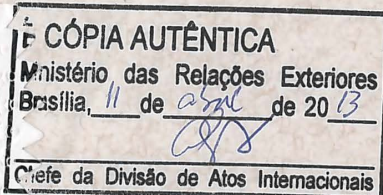 É CÓPIA AUTÊNTICA
Ministério das Relações Exteriores
Brasília, 11 de abril de 2013
Chefe da Divisão de Atos Internacionais